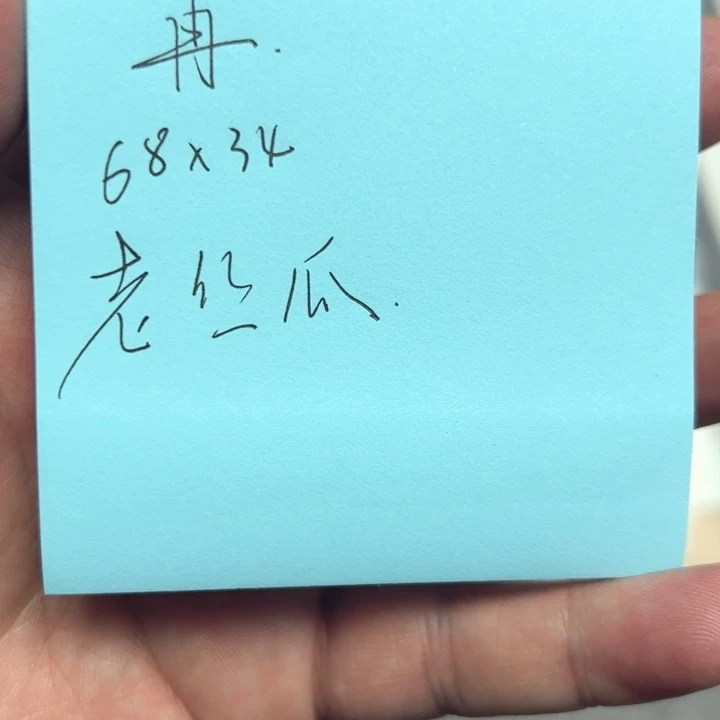 冉.
68x34
老丝瓜.